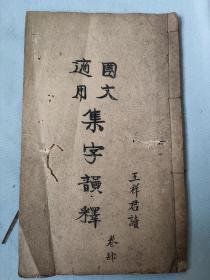 國文
適用
集字韻釋
王祥君讀
卷肆